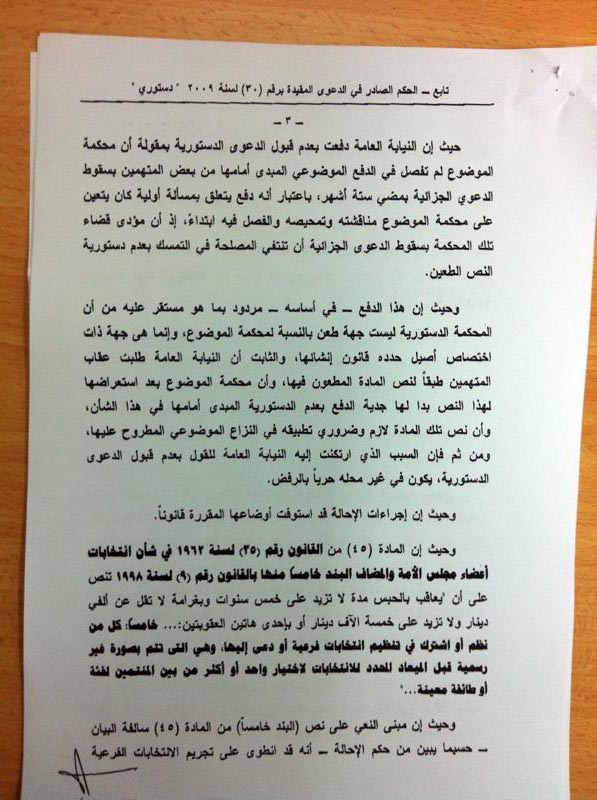 تابع ــ الحكم الصادر في الدعوى المقيدة برقم (٣٠) لسنة ٢٠٠٩ " دستوري "
ــ ٣ ــ
حيث إن النيابة العامة دفعت بعدم قبول الدعوى الدستورية بمقولة أن محكمة
الموضوع لم تفصل في الدفع الموضوعي المبدى أمامها من بعض المتهمين بسقوط
الدعوي الجزائية بمضي ستة أشهر، باعتبار أنه دفع يتعلق بمسألة أولية كان يتعين
على محكمة الموضوع مناقشته وتمحيصه والفصل فيه ابتداءً، إذ أن مؤدى قضاء
تلك المحكمة بسقوط الدعوى الجزائية أن تنتفي المصلحة في التمسك بعدم دستورية
النص الطعين.
وحيث إن هذا الدفع ــ في أساسه ــ مردود بما هو مستقر عليه من أن
المحكمة الدستورية ليست جهة طعن بالنسبة لمحكمة الموضوع، وإنما هى جهة ذات
اختصاص أصيل حدده قانون إنشائها، والثابت أن النيابة العامة طلبت عقاب
المتهمين طبقاً لنص المادة المطعون فيها، وأن محكمة الموضوع بعد استعراضها
لهذا النص بدا لها جدية الدفع بعدم الدستورية المبدى أمامها في هذا الشأن،
وأن نص تلك المادة لازم وضروري تطبيقه في النزاع الموضوعي المطروح عليها،
ومن ثم فإن السبب الذي ارتكنت إليه النيابة العامة للقول بعدم قبول الدعوى
الدستورية، يكون في غير محله حرياً بالرفض.
وحيث إن إجراءات الإحالة قد استوفت أوضاعها المقررة قانوناً.
وحيث إن المادة (٤٥) من القانون رقم (٣٥) لسنة ١٩٦٢ في شأن انتخابات
أعضاء مجلس الأمة والمضاف البند خامساً منها بالقانون رقم (٩) لسنة ١٩٩٨ تنص
على أن "يعاقب بالحبس مدة لا تزيد على خمس سنوات وبغرامة لا تقل عن ألفي
دينار ولا تزيد على خمسة آلاف دينار أو بإحدى هاتين العقوبتين:... خامساً: كل من
نظم أو اشترك في تنظيم انتخابات فرعية أو دعى إليها، وهي التى تتم بصورة غير
رسمية قبل الميعاد المحدد للانتخابات لاختيار واحد أو أكثر من بين المنتمين لفئة
أو طائفة معينة..."
وحيث إن مبنى النعي على نص (البند خامساً) من المادة (٤٥) سالفة البيان
ــ حسبما يبين من حكم الإحالة ــ أنه قد انطوى على تجريم الانتخابات الفرعية